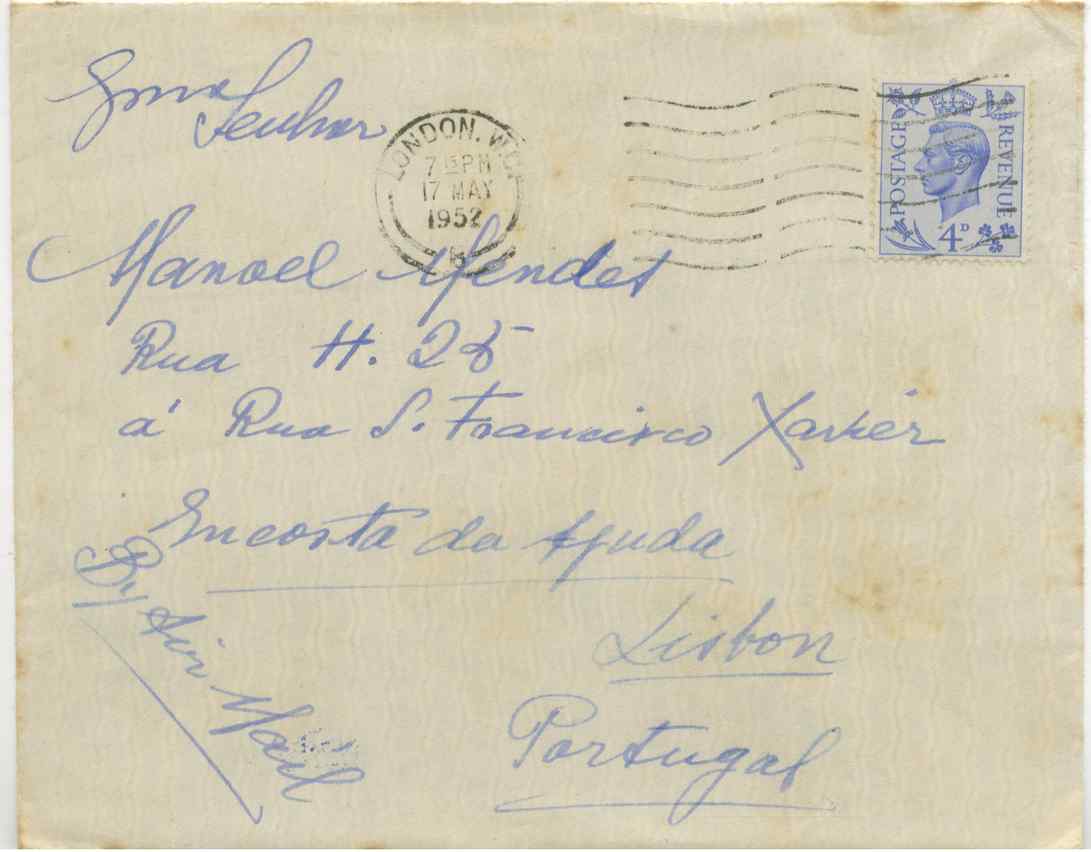 Exmo
Senhor
LONDON. W.C.
7 15 PM
17 MAY
1952
POSTAGE
REVENUE
4D
Manoel Mendes
Rua H. 25
á Rua S. Francisco Xavier
Encosta da Ajuda
By Air Mail
Lisbon
Portugal